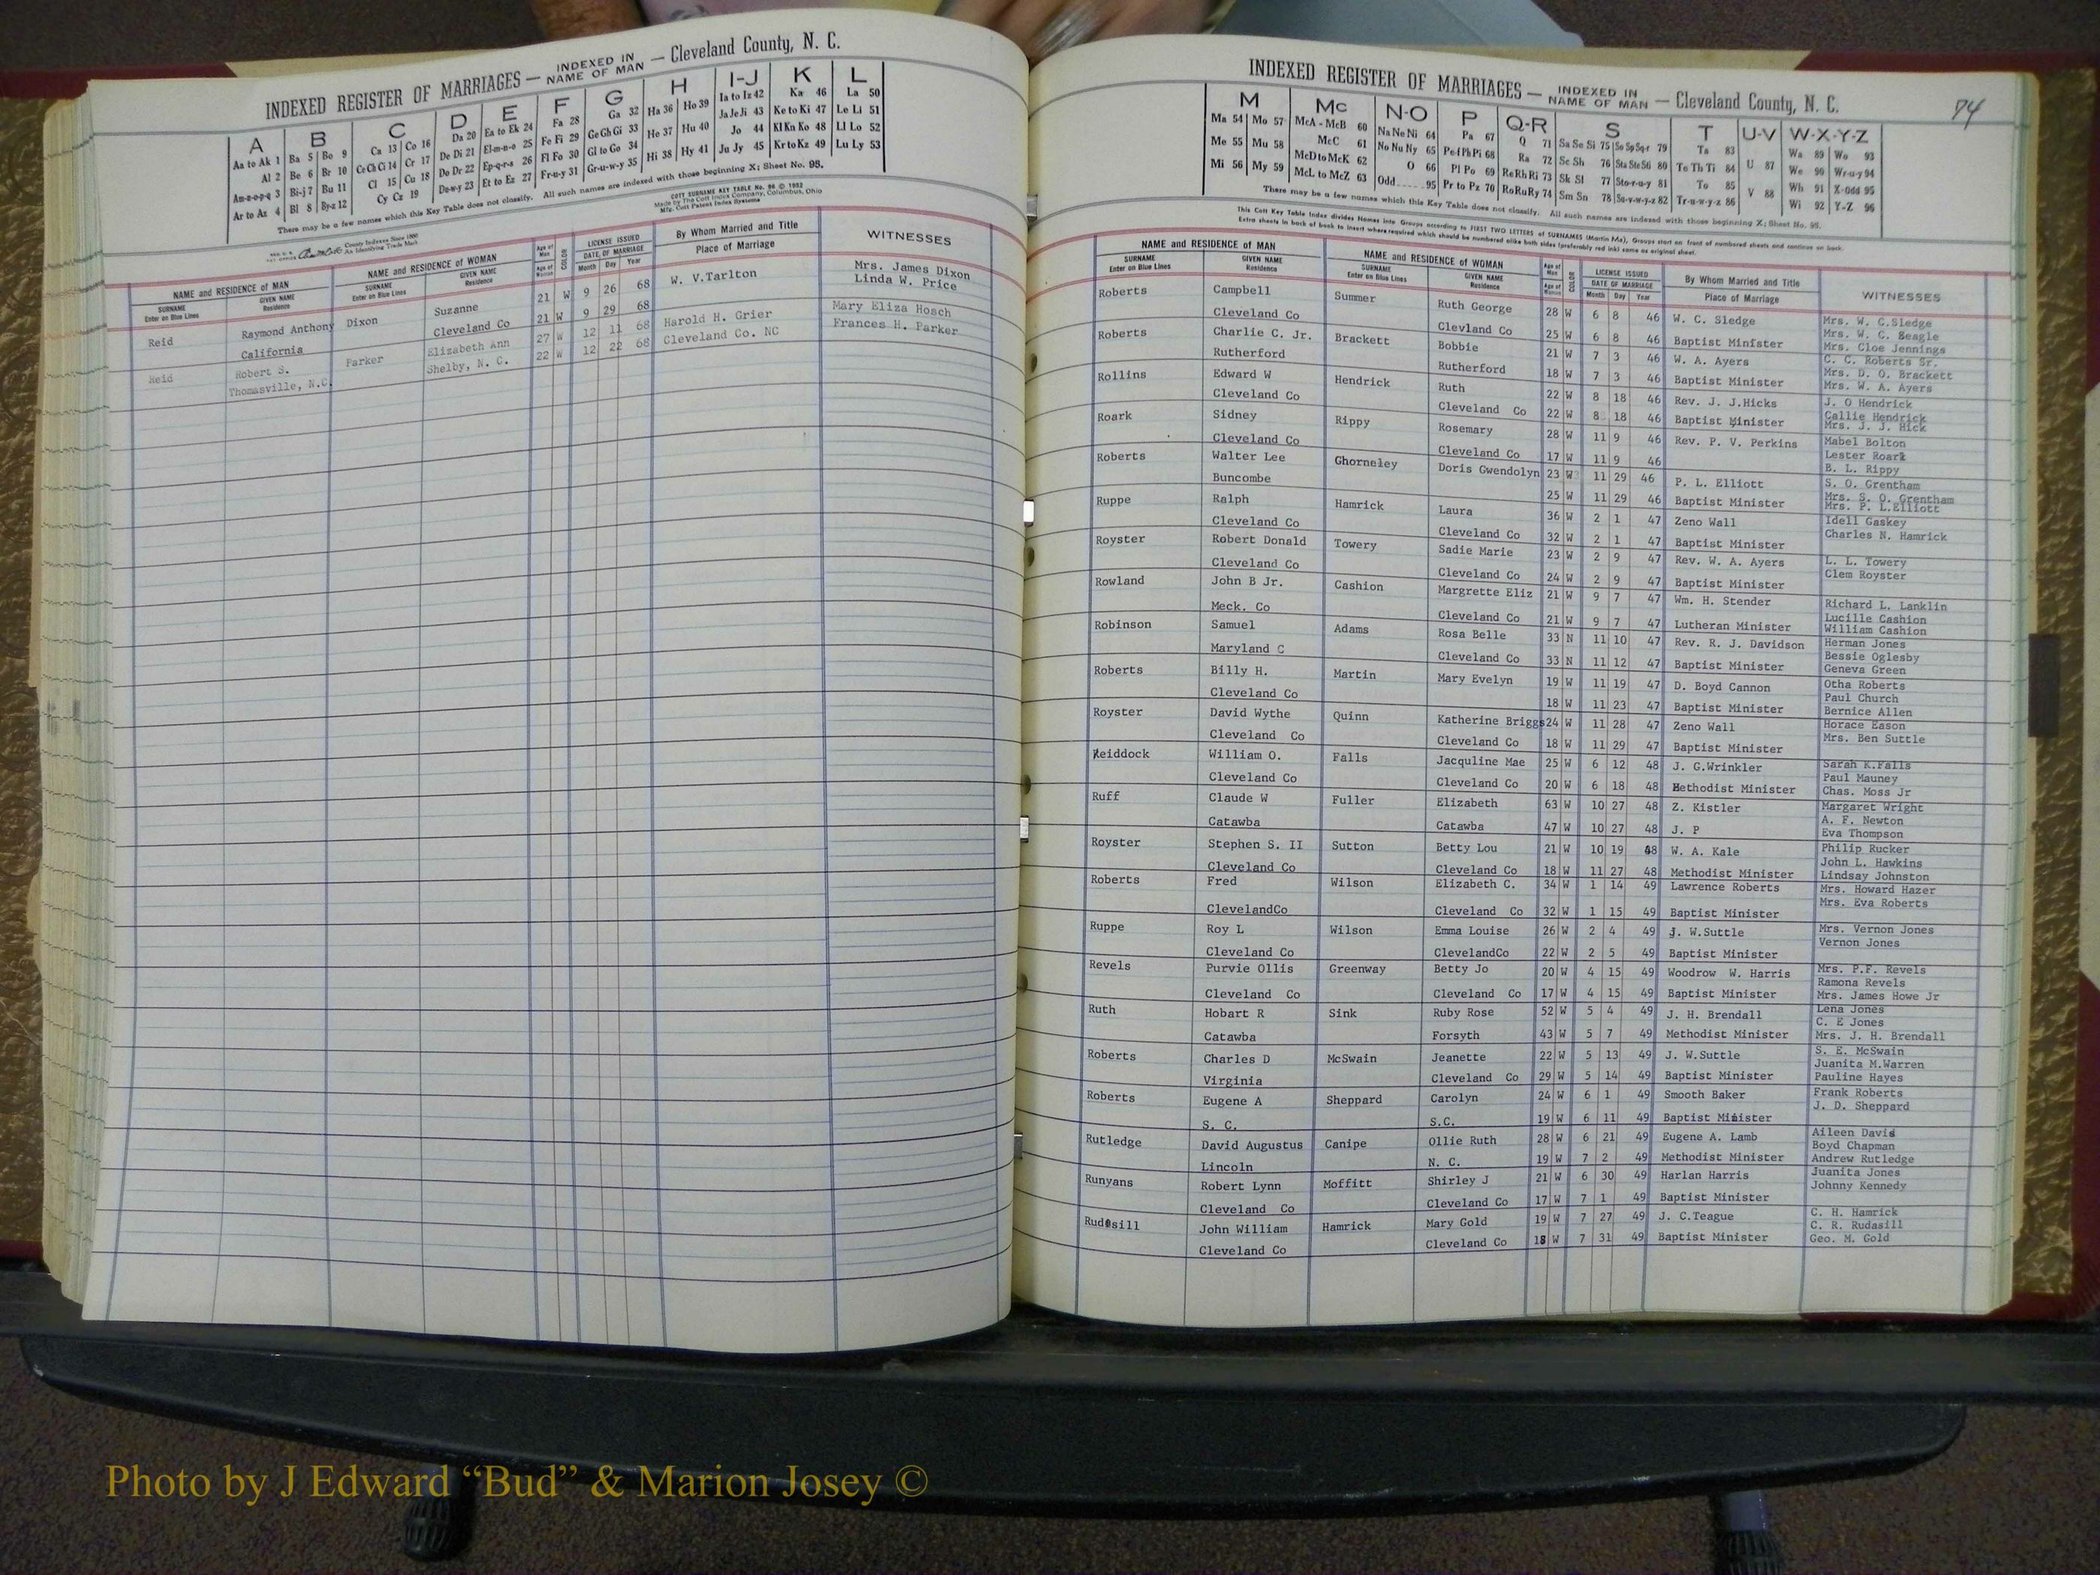 INDEXED REGISTER OF MARRIAGES — INDEXED IN NAME OF MAN — Cleveland County, N. C.
A B C D E F G H I-J K L
Aa to Ak 1 Ba 5 Bo 9 Ca 13 Co 16 Da 20 Ea to Ek 24 Fa 28 Ga 32 Ha 36 Ho 39 Ia to Iz 42 Ka 46 La 50
Al 2 Be 6 Br 10 Ce Ch Ci 14 Cr 17 De Di 21 El-m-n-o 25 Fe Fi 29 Ge Gh Gi 33 He 37 Hu 40 Ja Je Ji 43 Ke to Ki 47 Le Li 51
Am-n-o-p-q 3 Bi-j 7 Bu 11 Cl 15 Cu 18 Do Dr 22 Ep-q-r-s 26 Fl Fo 30 Gl to Go 34 Hi 38 Hy 41 Jo 44 Kl Kn Ko 48 Ll Lo 52
Ar to Az 4 Bl 8 By-z 12 Cy Cz 19 De-w-y 23 Et to Ez 27 Fr-u-y 31 Gr-u-w-y 35 Ju Jy 45 Kr to Kz 49 Lu Ly 53
There may be a few names which this Key Table does not classify. All such names are indexed with those beginning X; Sheet No. 95.
COTT SURNAME KEY TABLE No. 96 © 1952
Made by The Cott Index Company, Columbus, Ohio
Mfg. Cott Patent Index Systems
County Indexes Since 1888
An Identifying Trade Mark
NAME and RESIDENCE OF MAN NAME and RESIDENCE OF WOMAN Age of Man COLOR LICENSE ISSUED By Whom Married and Title WITNESSES
SURNAME GIVEN NAME SURNAME GIVEN NAME Age of Woman DATE OF MARRIAGE Place of Marriage
Enter on Blue Lines Residence Enter on Blue Lines Residence Month Day Year
Reid Raymond Anthony Dixon Suzanne 21 W 9 26 68 W. V.Tarlton Mrs. James Dixon
California Cleveland Co 21 W 9 29 68 Linda W. Price
Reid Robert S. Parker Elizabeth Ann 27 W 12 11 68 Harold H. Grier Mary Eliza Hosch
Thomasville, N.C. Shelby, N. C. 22 W 12 22 68 Cleveland Co. NC Frances H. Parker
INDEXED REGISTER OF MARRIAGES — INDEXED IN NAME OF MAN — Cleveland County, N. C. 74
M Mc N-O P Q-R S T U-V W-X-Y-Z
Ma 54 Mo 57 McA - McB 60 Na Ne Ni 64 Pa 67 Q 71 Sa Se Si 75 So Sp Sq-r 79 Ta 83 Wa 89 Wo 93
Me 55 Mu 58 McC 61 No Nu Ny 65 Pe-f Ph Pi 68 Ra 72 Sc Sh 76 Sta Ste Sti 80 Te Th Ti 84 U 87 We 90 Wr-u-y 94
Mi 56 My 59 McD to McK 62 O 66 Pl Po 69 Re Rh Ri 73 Sk Sl 77 Sto-r-u-y 81 To 85 Wh 91 X-Odd 95
McL to McZ 63 Odd 95 Pr to Pz 70 Ro Ru Ry 74 Sm Sn 78 Su-v-w-y-z 82 Tr-u-w-y-z 86 V 88 Wi 92 Y-Z 96
There may be a few names which this Key Table does not classify. All such names are indexed with those beginning X; Sheet No. 95.
This Cott Key Table Index divides Names into Groups according to FIRST TWO LETTERS of SURNAMES (Martin Ma), Groups start on front of numbered sheets and continue on back.
Extra sheets in back of book to insert where required which should be numbered alike both sides (preferably red ink) same as original sheet.
NAME and RESIDENCE OF MAN NAME and RESIDENCE OF WOMAN Age of Man COLOR LICENSE ISSUED By Whom Married and Title WITNESSES
SURNAME GIVEN NAME SURNAME GIVEN NAME Age of Woman DATE OF MARRIAGE Place of Marriage
Enter on Blue Lines Residence Enter on Blue Lines Residence Month Day Year
Roberts Campbell Summer Ruth George 28 W 6 8 46 W. C. Sledge Mrs. W. C.Sledge
Mrs. W. C. Beagle
Cleveland Co Clevland Co 25 W 6 8 46 Baptist Minister Mrs. Cloe Jennings
Roberts Charlie C. Jr. Brackett Bobbie 21 W 7 3 46 W. A. Ayers C. C. Roberts Sr.
Mrs. D. O. Brackett
Rutherford Rutherford 18 W 7 3 46 Baptist Minister Mrs. W. A. Ayers
Rollins Edward W Hendrick Ruth 22 W 8 18 46 Rev. J. J.Hicks J. O Hendrick
Callie Hendrick
Cleveland Co Cleveland Co 22 W 8 18 46 Baptist Minister Mrs. J. J. Hick
Roark Sidney Rippy Rosemary 28 W 11 9 46 Rev. P. V. Perkins Mabel Bolton
Lester Roark
Cleveland Co Cleveland Co 17 W 11 9 46 B. L. Rippy
Roberts Walter Lee Ghorneley Doris Gwendolyn 23 W 11 29 46 P. L. Elliott S. O. Grentham
Mrs. S. O. Grentham
Buncombe 25 W 11 29 46 Baptist Minister Mrs. P. L.Elliott
Ruppe Ralph Hamrick Laura 36 W 2 1 47 Zeno Wall Idell Gaskey
Charles N. Hamrick
Cleveland Co Cleveland Co 32 W 2 1 47 Baptist Minister
Royster Robert Donald Towery Sadie Marie 23 W 2 9 47 Rev. W. A. Ayers L. L. Towery
Clem Royster
Cleveland Co Cleveland Co 24 W 2 9 47 Baptist Minister
Rowland John B Jr. Cashion Margrette Eliz 21 W 9 7 47 Wm. H. Stender Richard L. Lanklin
Lucille Cashion
Meck. Co Cleveland Co 21 W 9 7 47 Lutheran Minister William Cashion
Robinson Samuel Adams Rosa Belle 33 N 11 10 47 Rev. R. J. Davidson Herman Jones
Bessie Oglesby
Maryland C Cleveland Co 33 N 11 12 47 Baptist Minister Geneva Green
Roberts Billy H. Martin Mary Evelyn 19 W 11 19 47 D. Boyd Cannon Otha Roberts
Paul Church
Cleveland Co 18 W 11 23 47 Baptist Minister Bernice Allen
Royster David Wythe Quinn Katherine Briggs 24 W 11 28 47 Zeno Wall Horace Eason
Mrs. Ben Suttle
Cleveland Co Cleveland Co 18 W 11 29 47 Baptist Minister
Reiddock William O. Falls Jacquline Mae 25 W 6 12 48 J. G.Wrinkler Sarah K.Falls
Paul Mauney
Cleveland Co Cleveland Co 20 W 6 18 48 Methodist Minister Chas. Moss Jr
Ruff Claude W Fuller Elizabeth 63 W 10 27 48 Z. Kistler Margaret Wright
A. F. Newton
Catawba Catawba 47 W 10 27 48 J. P Eva Thompson
Royster Stephen S. II Sutton Betty Lou 21 W 10 19 48 W. A. Kale Philip Rucker
John L. Hawkins
Cleveland Co Cleveland Co 18 W 11 27 48 Methodist Minister Lindsay Johnston
Roberts Fred Wilson Elizabeth C. 34 W 1 14 49 Lawrence Roberts Mrs. Howard Hazer
Mrs. Eva Roberts
ClevelandCo Cleveland Co 32 W 1 15 49 Baptist Minister
Ruppe Roy L Wilson Emma Louise 26 W 2 4 49 J. W.Suttle Mrs. Vernon Jones
Vernon Jones
Cleveland Co ClevelandCo 22 W 2 5 49 Baptist Minister
Revels Purvie Ollis Greenway Betty Jo 20 W 4 15 49 Woodrow W. Harris Mrs. P.F. Revels
Ramona Revels
Cleveland Co Cleveland Co 17 W 4 15 49 Baptist Minister Mrs. James Howe Jr
Ruth Hobart R Sink Ruby Rose 52 W 5 4 49 J. H. Brendall Lena Jones
C. E Jones
Catawba Forsyth 43 W 5 7 49 Methodist Minister Mrs. J. H. Brendall
Roberts Charles D McSwain Jeanette 22 W 5 13 49 J. W.Suttle S. E. McSwain
Juanita M.Warren
Virginia Cleveland Co 29 W 5 14 49 Baptist Minister Pauline Hayes
Roberts Eugene A Sheppard Carolyn 24 W 6 1 49 Smooth Baker Frank Roberts
J. D. Sheppard
S. C. S.C. 19 W 6 11 49 Baptist Minister
Rutledge David Augustus Canipe Ollie Ruth 28 W 6 21 49 Eugene A. Lamb Aileen Davis
Boyd Chapman
Lincoln N. C. 19 W 7 2 49 Methodist Minister Andrew Rutledge
Runyans Robert Lynn Moffitt Shirley J 21 W 6 30 49 Harlan Harris Juanita Jones
Johnny Kennedy
Cleveland Co Cleveland Co 17 W 7 1 49 Baptist Minister
Rudasill John William Hamrick Mary Gold 19 W 7 27 49 J. C.Teague C. H. Hamrick
C. R. Rudasill
Cleveland Co Cleveland Co 18 W 7 31 49 Baptist Minister Geo. M. Gold
Photo by J Edward “Bud” & Marion Josey ©